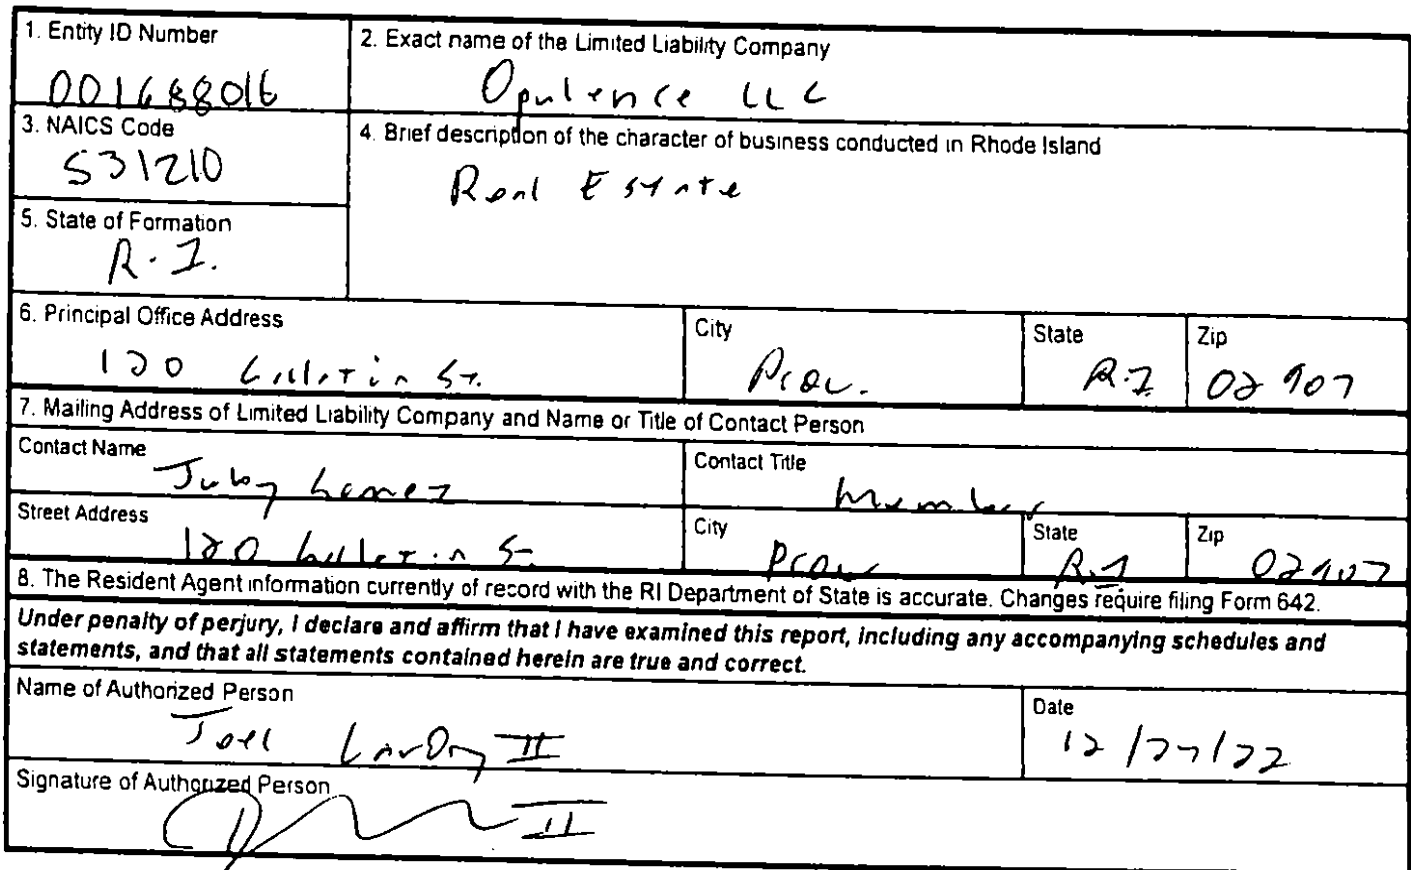 1. Entity ID Number
001688016
2. Exact name of the Limited Liability Company
Opulence LLC
3. NAICS Code
531210
4. Brief description of the character of business conducted in Rhode Island
Real Estate
5. State of Formation
R.I.
6. Principal Office Address
120 St.
City
Prov.
State
R.I
Zip
02907
7. Mailing Address of Limited Liability Company and Name or Title of Contact Person
Contact Name
Contact Title
Member
Street Address
120
City
Prov
State
R.I
Zip
02907
8. The Resident Agent information currently of record with the RI Department of State is accurate. Changes require filing Form 642.
Under penalty of perjury, I declare and affirm that I have examined this report, including any accompanying schedules and
statements, and that all statements contained herein are true and correct.
Name of Authorized Person
Joel Landry II
Date
12/27/22
Signature of Authorized Person
II